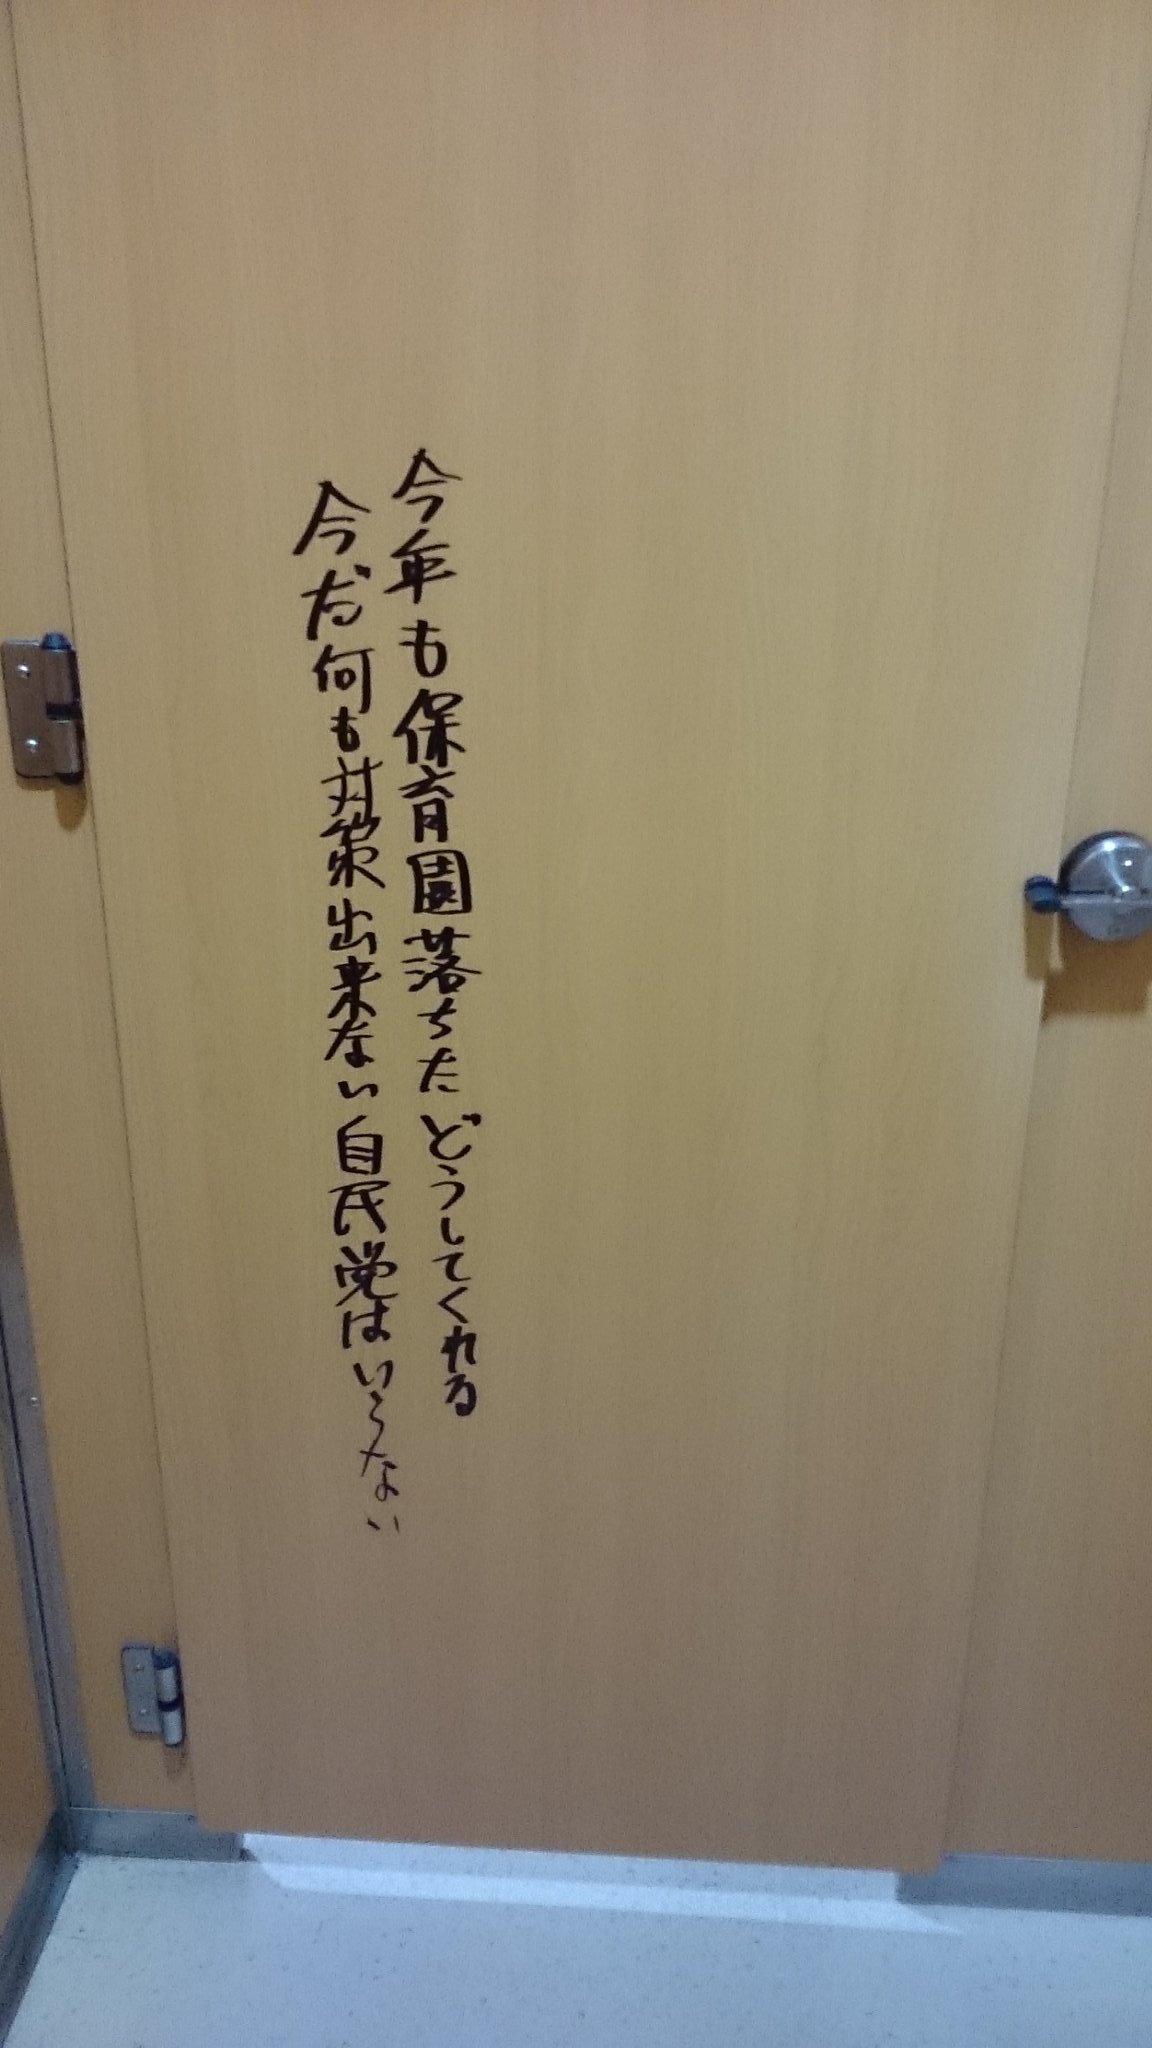 今年も保育園落ちたどうしてくれる
今だ何も対策出来ない自民党はいらない